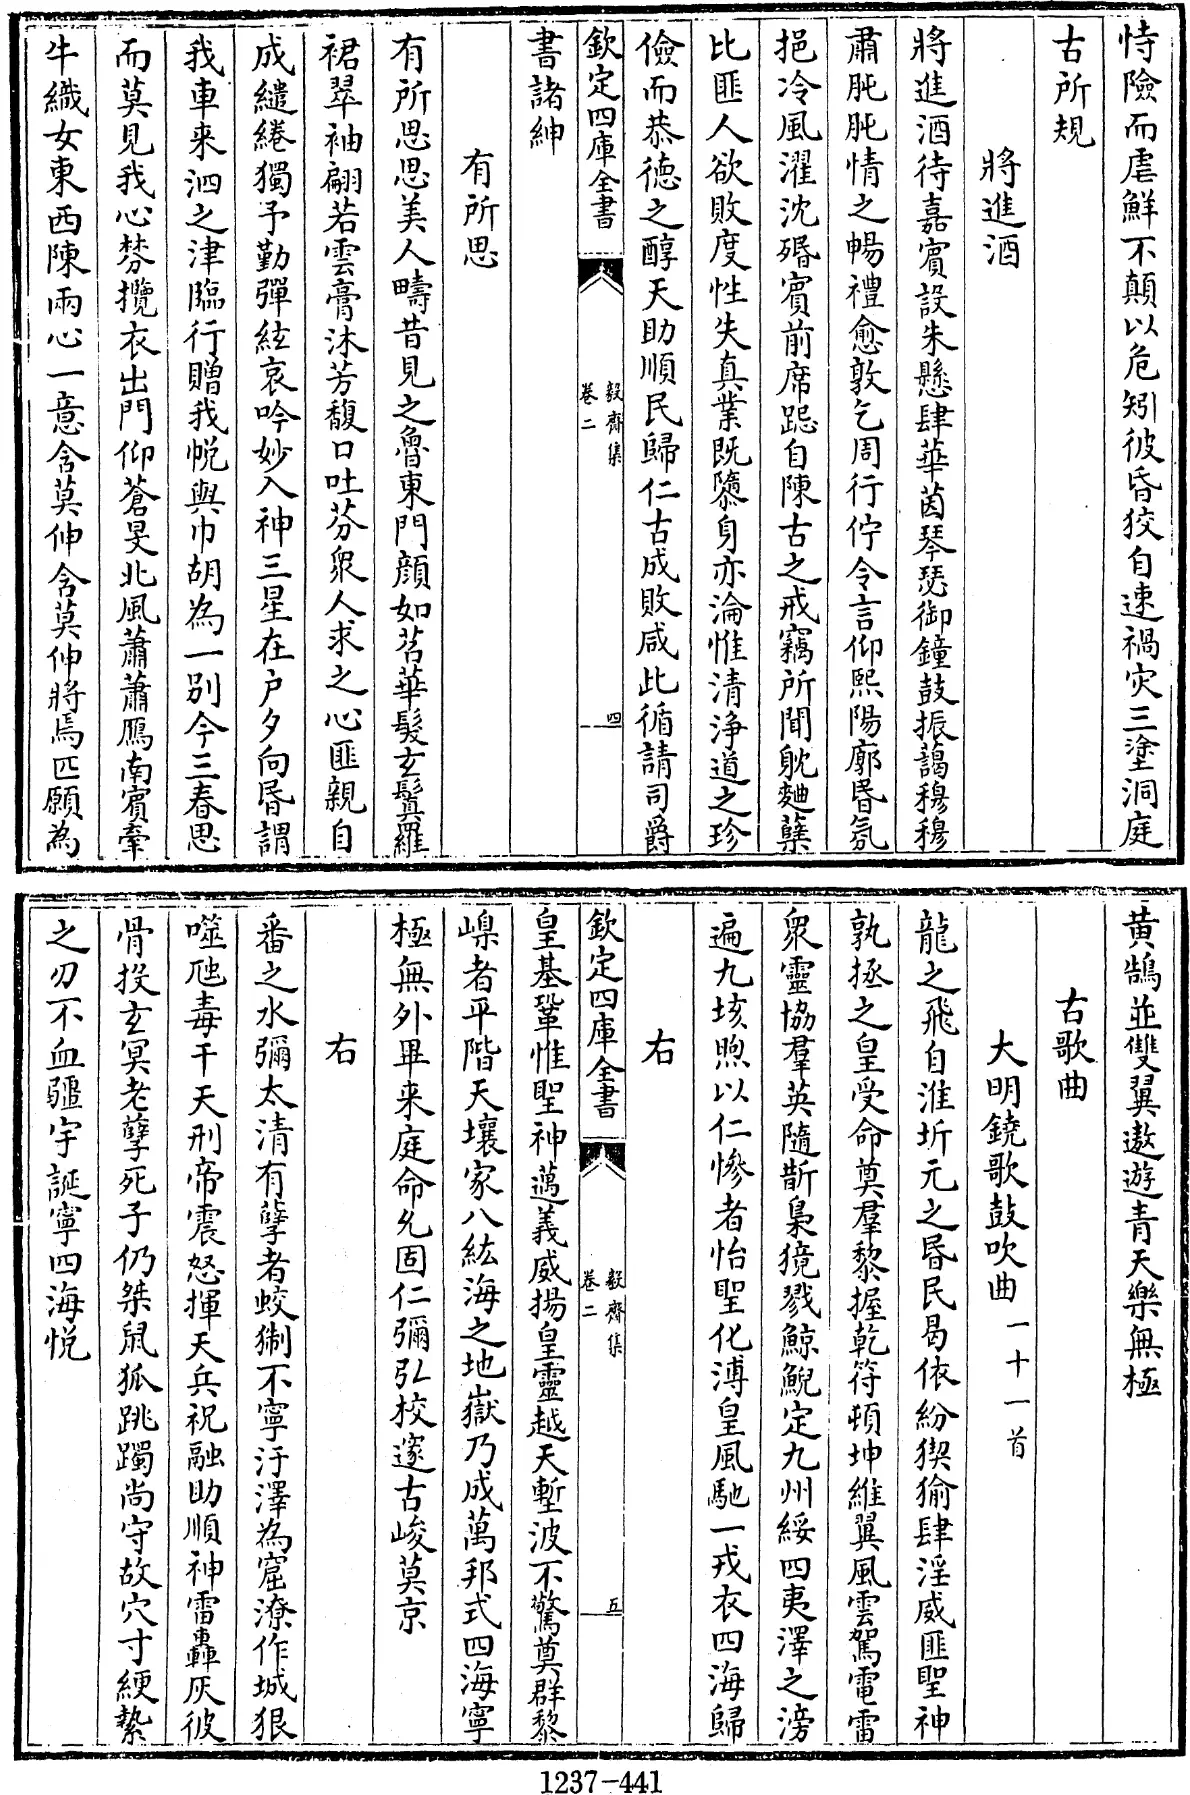 恃險而虐鮮不顛以危矧彼昏狡自速禍灾三塗洞庭
古所規
將進酒
將進酒待嘉賓設朱懸肆華茵琴瑟御鐘鼓振藹穆穆
肅肫肫情之暢禮愈敦乞周行佇令言仰熙陽廓昬氛
挹冷風濯沈㬪賓前席跽自陳古之戒竊所聞躭麯蘖
比匪人欲敗度性失真業既隳身亦淪惟清浄道之珍
儉而恭德之醇天助順民歸仁古成敗咸此循請司爵
欽定四庫全書
毅齋集
卷二
四
書諸紳
有所思
有所思思美人疇昔見之魯東門顔如苕華髮玄鬒羅
裙翠袖翩若雲膏沐芳馥口吐芬衆人求之心匪親自
成繾綣獨予勤彈絃哀吟妙入神三星在户夕向昬謂
我車来泗之津臨行贈我帨與巾胡為一别今三春思
而莫見我心棼攬衣出門仰蒼旻北風蕭蕭鴈南賓牽
牛織女東西陳兩心一意含莫伸含莫伸將焉匹願為
黄鵠並雙翼遨遊青天樂無極
古歌曲
大明鐃歌鼓吹曲一十一首
龍之飛自淮圻元之昬民曷依紛猰㺄肆淫威匪聖神
孰拯之皇受命奠羣黎握乾符頓坤維翼風雲駕電雷
衆靈協羣英隨斮梟獍戮鯨鯢定九州綏四夷澤之滂
遍九垓煦以仁慘者怡聖化溥皇風馳一戎衣四海歸
右
欽定四庫全書
毅齋集
卷二
五
皇基鞏惟聖神邁義威揚皇靈越天塹波不驚奠群黎
嵲者平階天壤家八紘海之地嶽乃成萬邦式四海寧
極無外畢来庭命允固仁彌弘校邃古峻莫京
右
番之水彌太清有孽者蛟猘不寧汙澤為窟潦作城狠
噬虺毒干天刑帝震怒揮天兵祝融助順神雷轟灰彼
骨投玄冥老孽死子仍桀鼠狐跳躅尚守故穴寸綆縶
之刃不血疆宇誕寧四海悦
1237-441